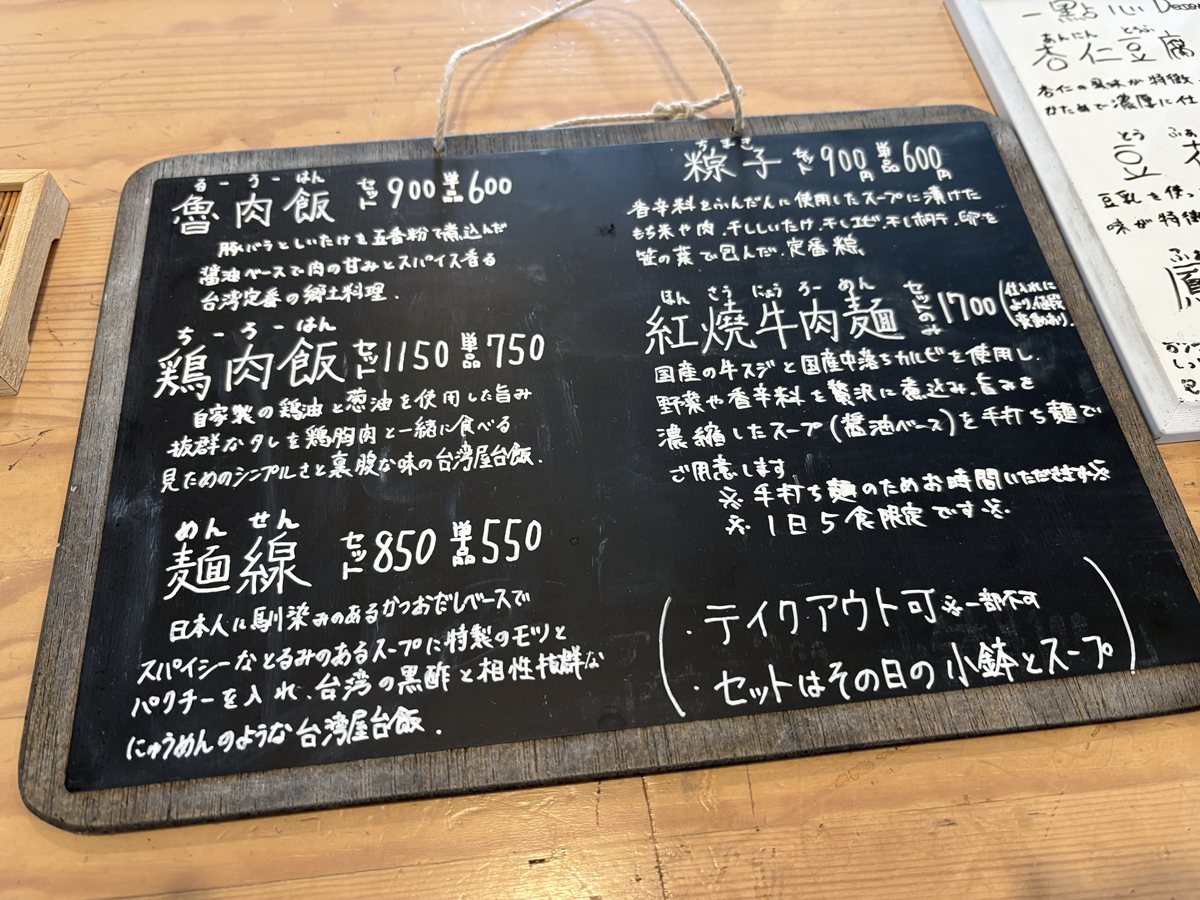 るーろーはん
魯肉飯 セット900 単品600
豚バラとしいたけを五香粉で煮込んだ
醤油ベースで肉の甘みとスパイス香る
台湾定番の郷土料理.
ちーろーはん
鶏肉飯 セット1150 単品750
自家製の鶏油と葱油を使用した旨み
抜群なタレを鶏胸肉と一緒に食べる
見ためのシンプルさと裏腹な味の台湾屋台飯.
めんせん
麺線 セット850 単品550
日本人に馴染みのあるかつおだしベースで
スパイシーなとろみのあるスープに特製のモツと
パクチーを入れ、台湾の黒酢と相性抜群な
にゅうめんのような台湾屋台飯.
ちまき
粽子 セット900円 単品600円
香辛料をふんだんに使用したスープに漬けた
もち米や肉、干ししいたけ、干しエビ、干しホタテ、卵を
笹の葉で包んだ、定番粽.
ほんさうにょうろーめん
紅焼牛肉麺 セットのみ1700 (仕入れにより値段変動あり)
国産の牛スジと国産中落ちカルビを使用し、
野菜や香辛料を贅沢に煮込み、旨みを
濃縮したスープ(醤油ベース)を手打ち麺で
ご用意します
※手打ち麺のためお時間いただきます※
※1日5食限定です※
・テイクアウト可 ※一部不可
・セットはその日の小鉢とスープ
一點心 Desse
あんにん とうふ
杏仁豆腐
杏仁の風味が特徴、
かためで濃厚に仕
とう
豆
豆乳を使っ
味が特徴